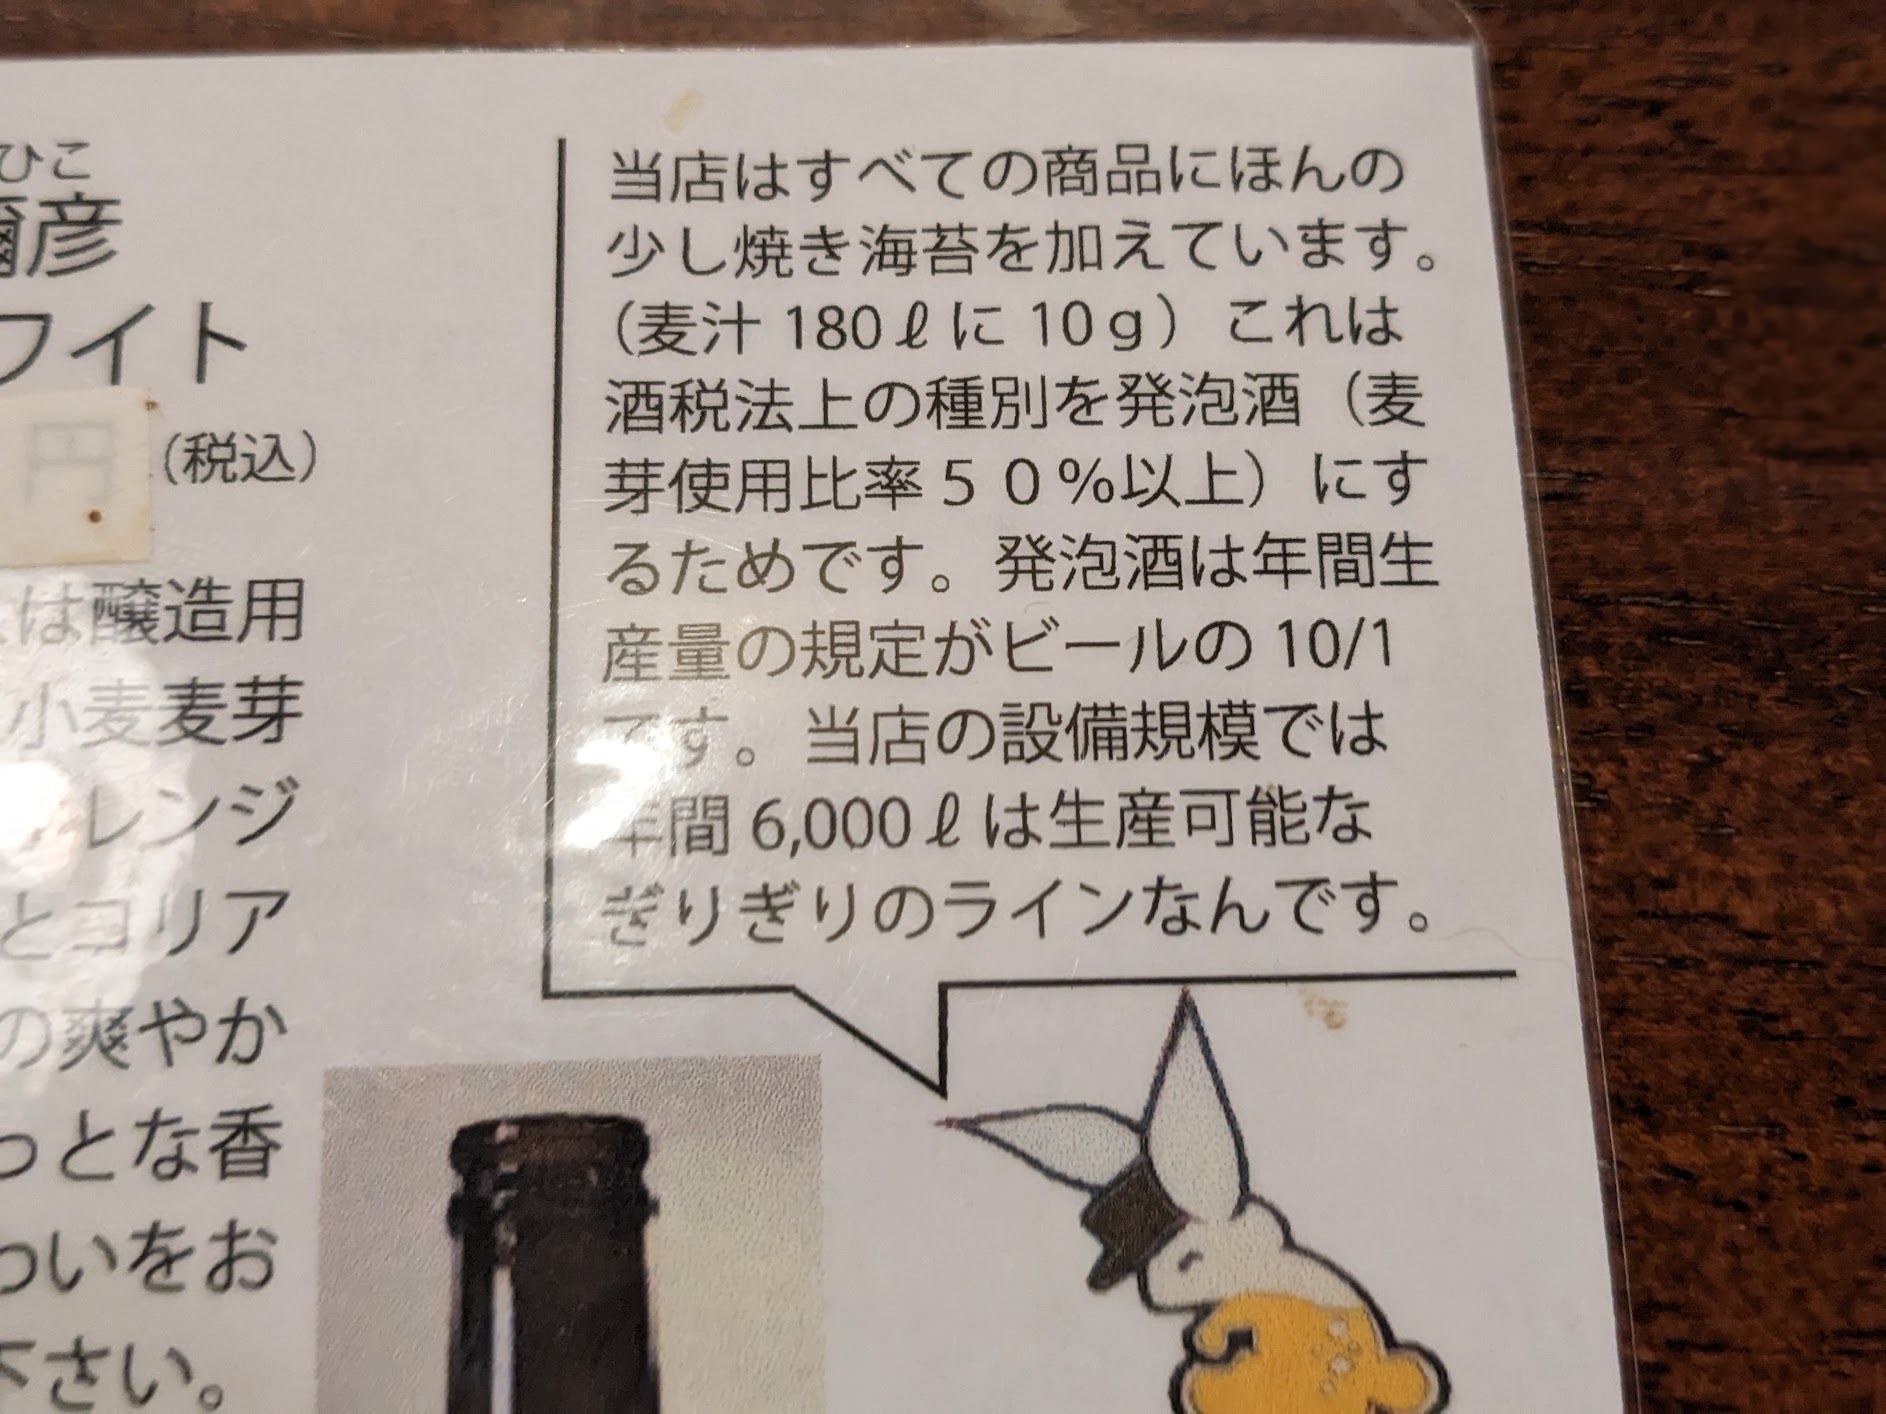 ひこ
彌彦
ワイト
円
(税込)
は醸造用
小麦麦芽
レンジ
とコリア
の爽やか
っとな香
わいをお
下さい。
当店はすべての商品にほんの
少し焼き海苔を加えています。
（麦汁 180ℓに 10ｇ）これは
酒税法上の種別を発泡酒（麦
芽使用比率５０％以上）にす
るためです。発泡酒は年間生
産量の規定がビールの 10/1
です。当店の設備規模では
年間 6,000ℓは生産可能な
ぎりぎりのラインなんです。